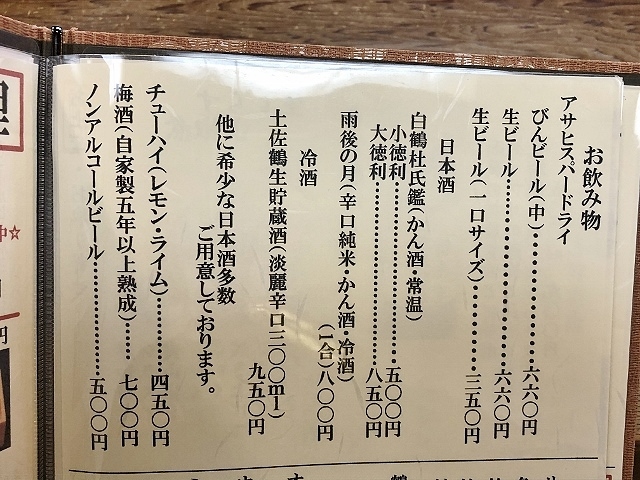 お飲み物
アサヒスパードライ
びんビール(中)……………六六〇円
生ビール……………………六六〇円
生ビール(一口サイズ)…………三五〇円
日本酒
白鶴杜氏鑑(かん酒・常温)
小徳利……………………五〇〇円
大徳利……………………八五〇円
雨後の月(辛口純米・かん酒・冷酒)
(1合)八〇〇円
冷酒
土佐鶴生貯蔵酒(淡麗辛口三〇〇ml)
九五〇円
他に希少な日本酒多数
ご用意しております。
チューハイ(レモン・ライム)……………四五〇円
梅酒(自家製五年以上熟成)……七〇〇円
ノンアルコールビール……………五〇〇円